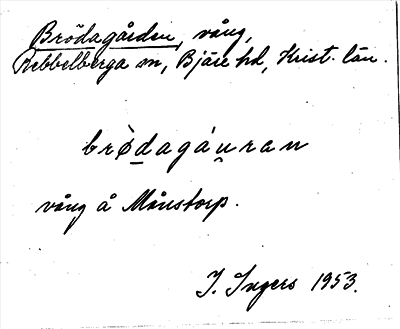 Brödagården, vång,
Rebbelberga sn, Bjäre hd, Krist. län.
bròdagáu̯ran
vång å Månstorp.
I. Ingers 1953.